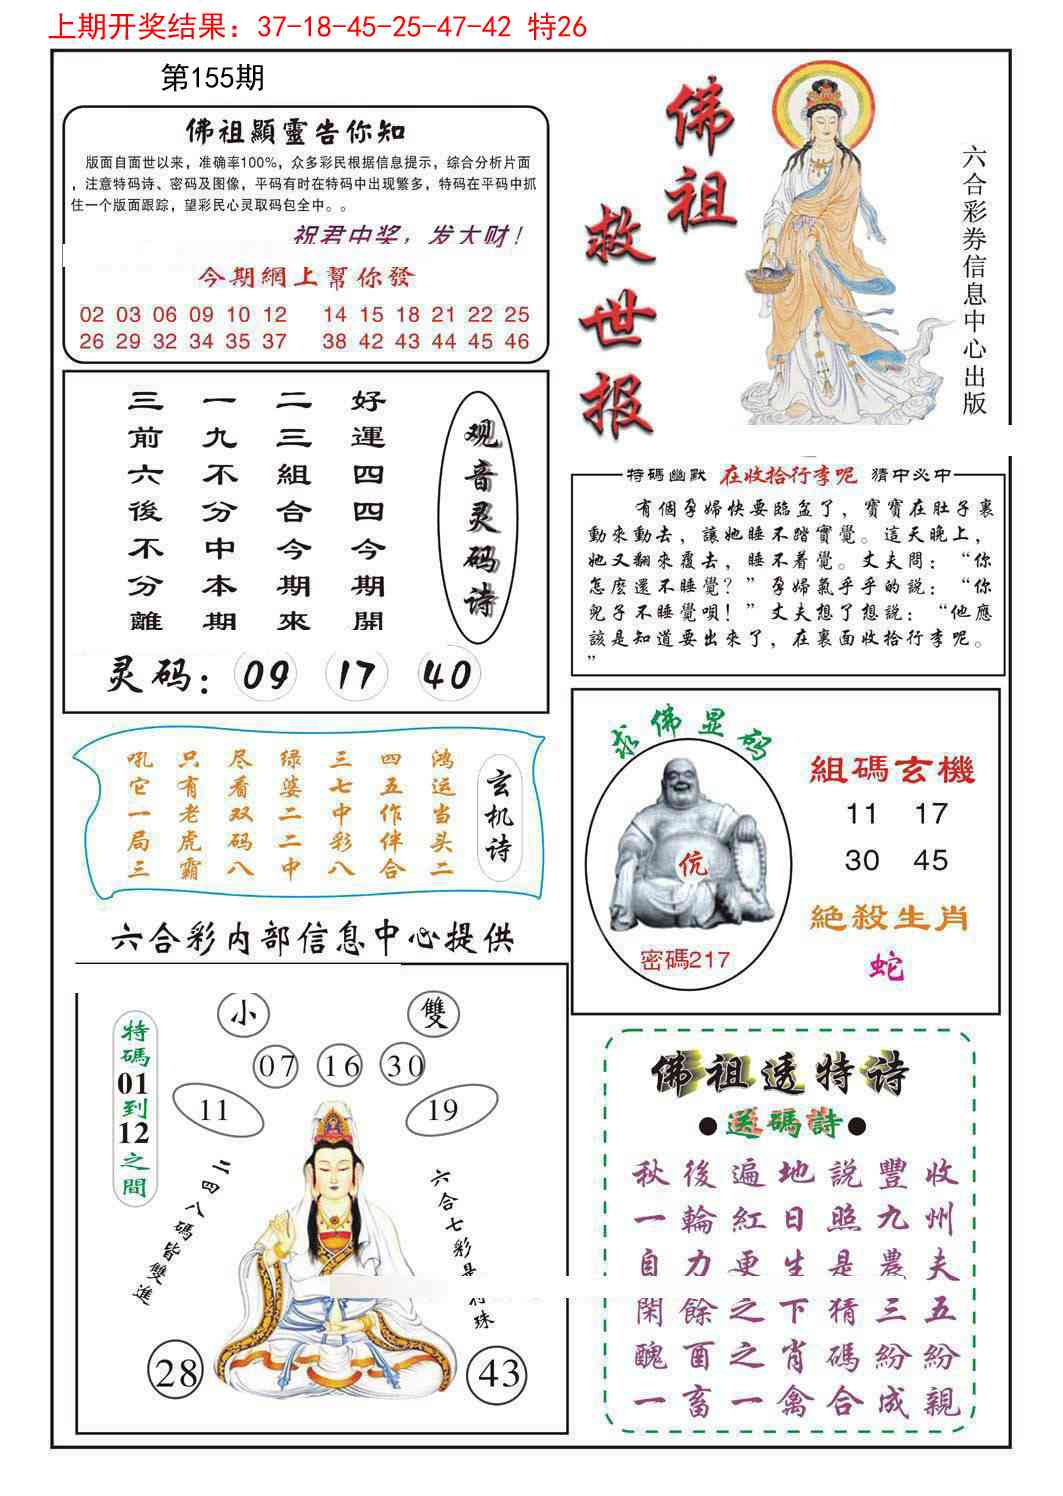 上期开奖结果：37-18-45-25-47-42 特26
第155期
佛祖顯靈告你知
版面自面世以来，准确率100%，众多彩民根据信息提示，综合分析片面
，注意特码诗、密码及图像，平码有时在特码中出现繁多，特码在平码中抓
住一个版面跟踪，望彩民心灵取码包全中。。
祝君中奖，发大财！
今期網上幫你發
02 03 06 09 10 12 14 15 18 21 22 25
26 29 32 34 35 37 38 42 43 44 45 46
佛祖
救世报
六合彩券信息中心出版
观音灵码诗
好運四四今期開
二三組合今期來
一九不分中本期
三前六後不分離
灵码：09 17 40
特碼幽默 在收拾行李呢 猜中必中
有個孕婦快要臨盆了，寶寶在肚子裏
動來動去，讓她睡不踏實覺。這天晚上，
她又翻來覆去，睡不着覺。丈夫問：“你
怎麽還不睡覺？”孕婦氣乎乎的説：“你
兒子不睡覺唄！”丈夫想了想説：“他應
該是知道要出來了，在裏面收拾行李呢。
”
玄机诗
鸿运当头二
四五作伴合
三七中彩八
绿婆二二中
尽看双码八
只有老虎霸
吼它一局三
求佛显码
伉
密碼217
組碼玄機
11 17
30 45
絶殺生肖
蛇
六合彩内部信息中心提供
特碼01到12之間
小 雙
07 16 30
11 19
二四八碼皆雙進
六合七彩是 珠
28 43
佛祖透特诗
●送碼詩●
秋後遍地説豐收
一輪紅日照九州
自力更生是農夫
閑餘之下猜三五
醜酉之肖碼紛紛
一畜一禽合成親